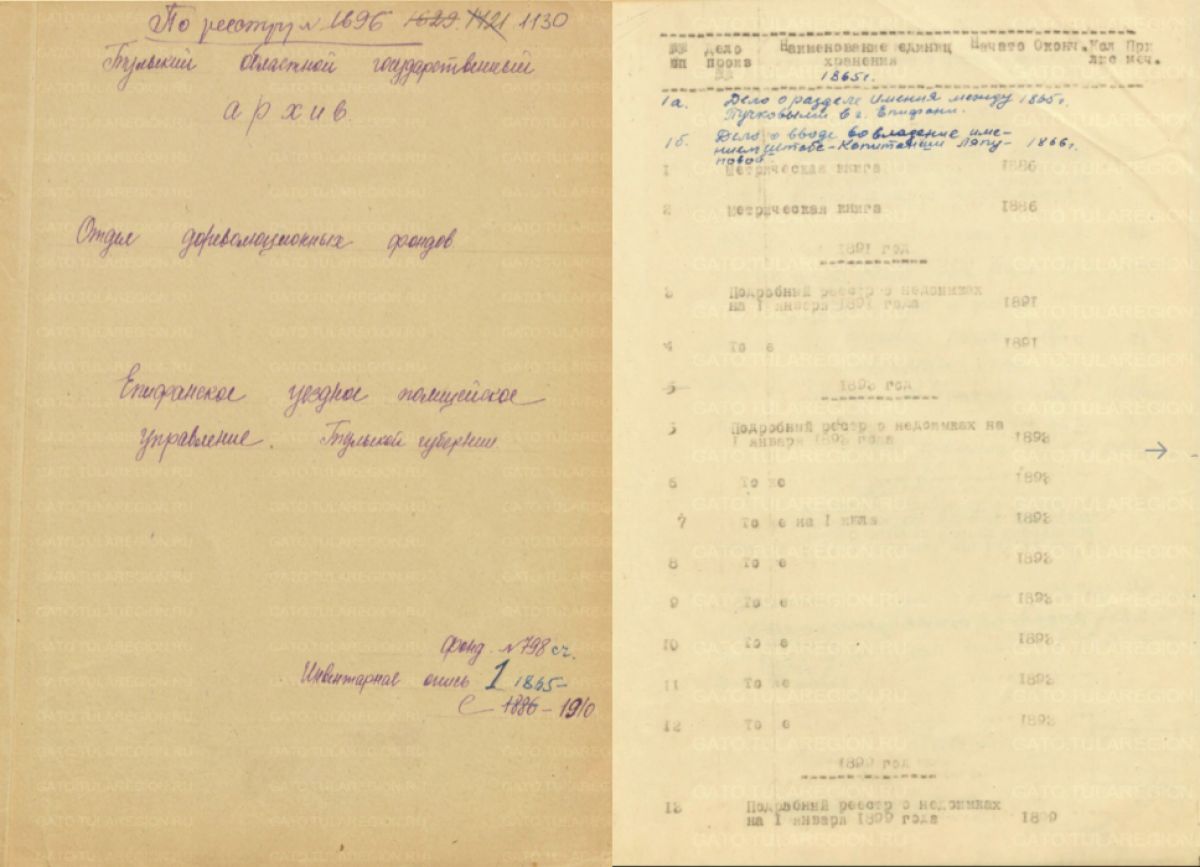 По реестру № 1696 1629 1421 1130
Тульский областной государственный
архив.
Отдел дореволюционных фондов
Епифанское уездное полицейское
управление. Тульской губернии.
Фонд № 798 сч.
Инвентарная опись 1 1865-
с 1886 - 1910
№№ Дело Наименование единиц Начато Оконч. Кол При
пп произ хранения лис меч.
№№ 1865г.
1а. Дело о разделе имения между 1865г.
Пучковыми в г. Епифани.
1б. Дело о вводе во владение име-
нием штабс-Капитанши Ляпу- 1866г.
новой.
1 Метрическая книга 1886
2 Метрическая книга 1886
1891 год
3 Подробный реестр о недоимках
на 1 января 1891 года 1891
4 То е 1891
5 1893 год
5 Подробный реестр о недоимках на
1 января 1893 года 1893
6 То же 1893
7 То е на 1 июля 1893
8 То е 1893
9 То е 1893
10 То е 1893
11 То же 1893
12 То е 1893
1899 год
13 Подробный реестр о недоимках
на 1 января 1899 года 1899
GATO.TULAREGION.RU